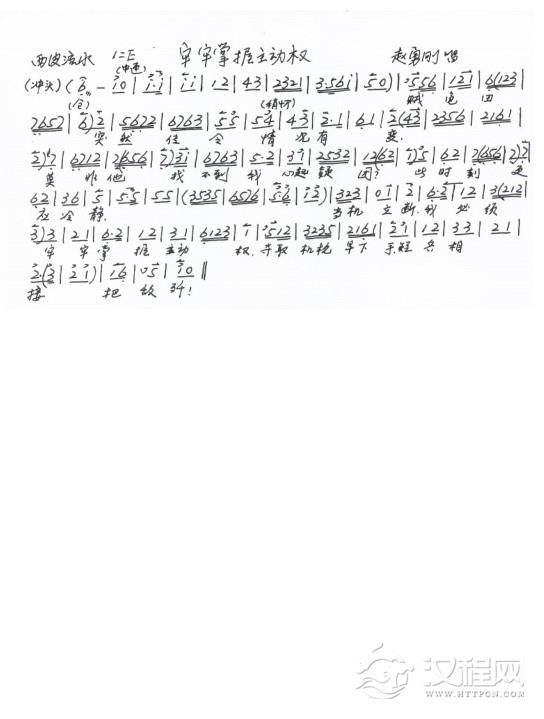 西皮流水 1=E 牢牢掌握主动权 赵勇刚 唱
(中速)
(冲头) (6 - | i 0 | i· i | i i | 1 2 | 4 3 | 2 3 2 1 | 3·5 6 i | 5 0) | 5 5 6 | 1 2 1 | 6(1 2 3
(仓) (稍快) 贼 电 田
7 6 5 7 | 6) 2 | 5 6 7 2 | 6 7 6 3 | 5 5 | 5 4 | 4 3 | 2·1 | 6 1 | 2(4 3 | 2 3 5 6 | 2 1 6 1 |
突 然 任 令 情 况 有 变.
2) 7 | 6 7 1 2 | 7 6 5 6 | 7) 3 1 | 6 7 6 3 | 5·2 | 3 7 | 2 5 3 2 | 1 2(6 2 | 1) 5 | 6 2 | 7(6 5 6 | 7) 2 |
莫 非 他 找 不 到 我 心 起 疑 团? 此 时 刻 更
6 2 | 3 6 | 5 | 5 5 | 5 5 | (3 5 3 5 | 6 5 1 6 | 5 6 | 1 2) | 3 2 3 | 0 1 | 2 | 6·2 | 1 2 | 3(2 1 2 |
应 冷 静. 当 机 立 断. 我 必 须
3) 3 | 2 1 | 6·2 | 1 2 | 3 1 | 6 1 2 3 | 1 | 5 1 2 | 3 2 3 5 | 2 1 6 1 | 2 1 | 1 2 | 3 3 | 2 1 |
牢 牢 掌 握 主 动 权. 寻 取 机 枪 早 下 手 短 兵 相
2·(3 | 2 1) | 1 6 | 0 5 | 1 0 ‖
接 把 敌 歼!
汉程网
WWW.HTTPCN.COM